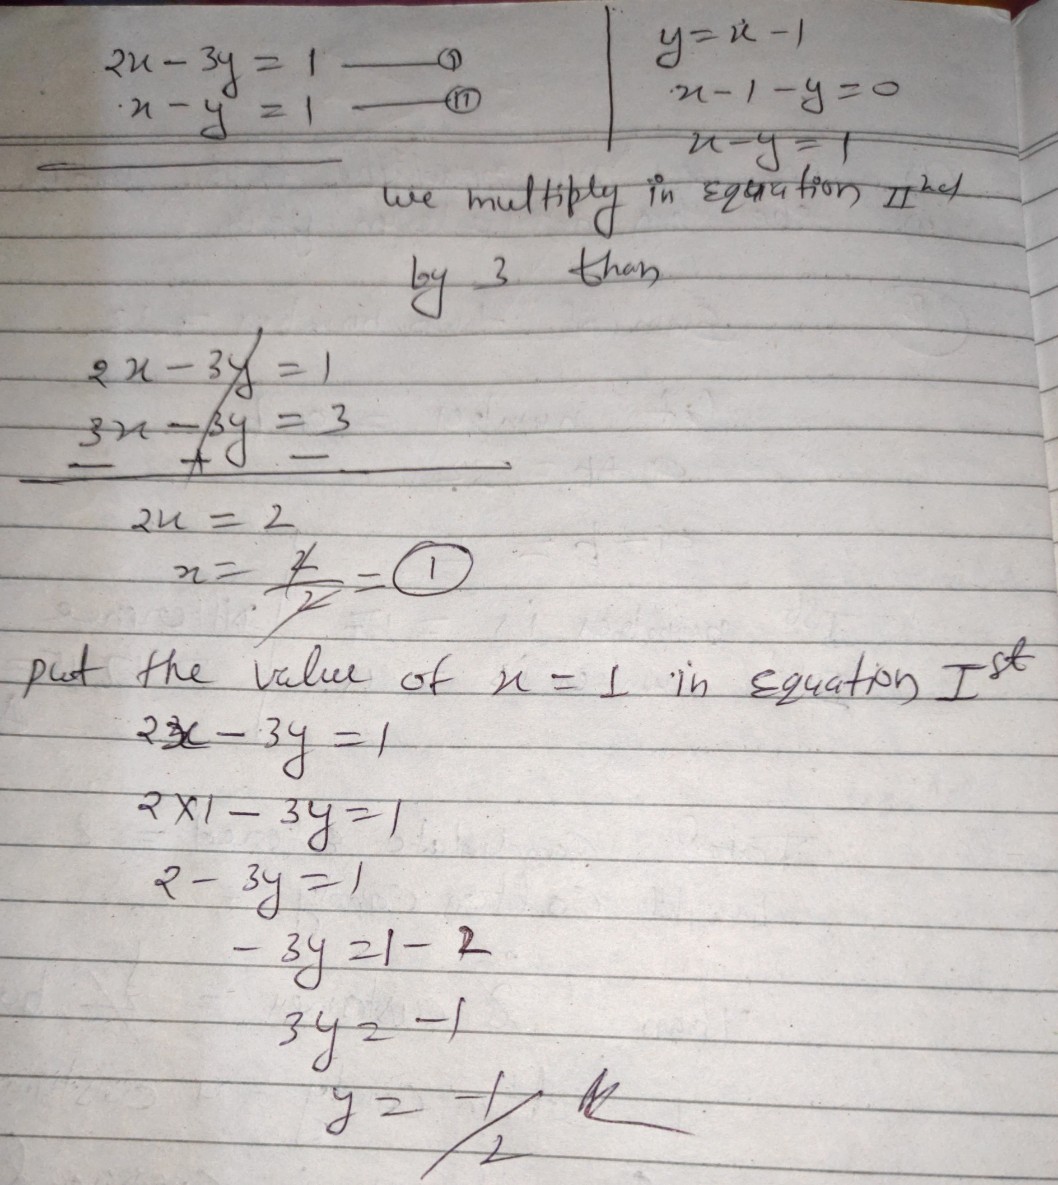 2x - 3y = 1 —— (I)
x - y = 1 —— (II)
y = x - 1
x - 1 - y = 0
x - y = 1
we multiply in equation IInd
by 3 than
2x - 3y = 1
3x - 3y = 3
- + -
2x = 2
x = 2/2 = 1
put the value of x = 1 in Equation Ist
2x - 3y = 1
2×1 - 3y = 1
2 - 3y = 1
- 3y = 1 - 2
3y = -1
y = -1/2